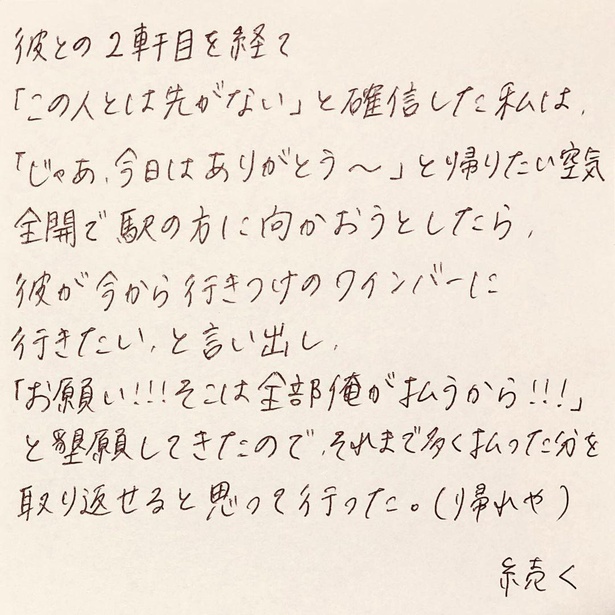 彼との2軒目を経て
「この人とは先がない」と確信した私は、
「じゃあ、今日はありがとう〜」と帰りたい空気
全開で駅の方に向かおうとしたら、
彼が今から行きつけのワインバーに
行きたい、と言い出し、
「お願い!!!そこは全部俺が払うから!!!」
と懇願してきたので、それまで多く払った分を
取り返せると思って行った。(帰れや)
続く